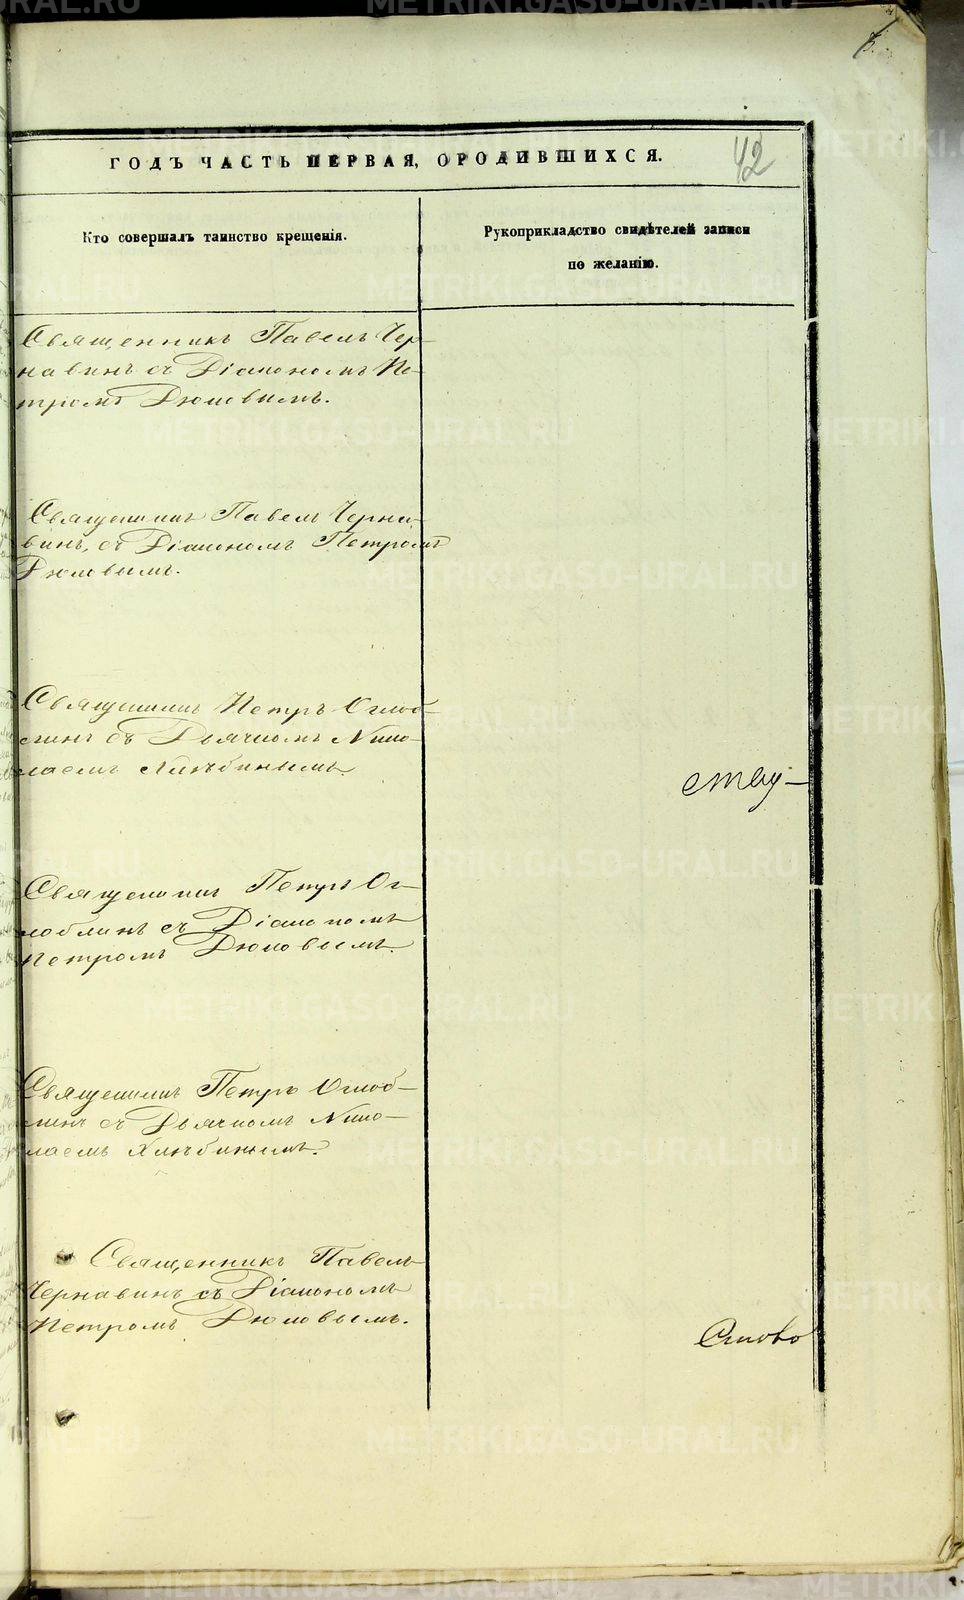 42
ГОДЪ ЧАСТЬ ПЕРВАЯ, О РОДИВШИХСЯ.
Кто совершалъ таинство крещенія.
Рукоприкладство свидѣтелей записи
по желанію.
Священникъ Павелъ Чер-
навинъ съ Діакономъ Пе-
тромъ Дюковымъ.
Священникъ Павелъ Черна-
винъ, съ Діакономъ Петромъ
Дюковымъ.
Священникъ Петръ Оглоб-
линъ съ Дьячкомъ Нико-
лаемъ Хлѣбинымъ.
ству-
Священникъ Петръ Ог-
лоблинъ съ Діакономъ
Петромъ Дюковымъ.
Священникъ Петръ Оглоб-
линъ съ Дьячкомъ Нико-
лаемъ Хлѣбинымъ.
Священникъ Павелъ
Чернавинъ съ Діакономъ
Петромъ Дюковымъ.
METRIKI.GASO-URAL.RU